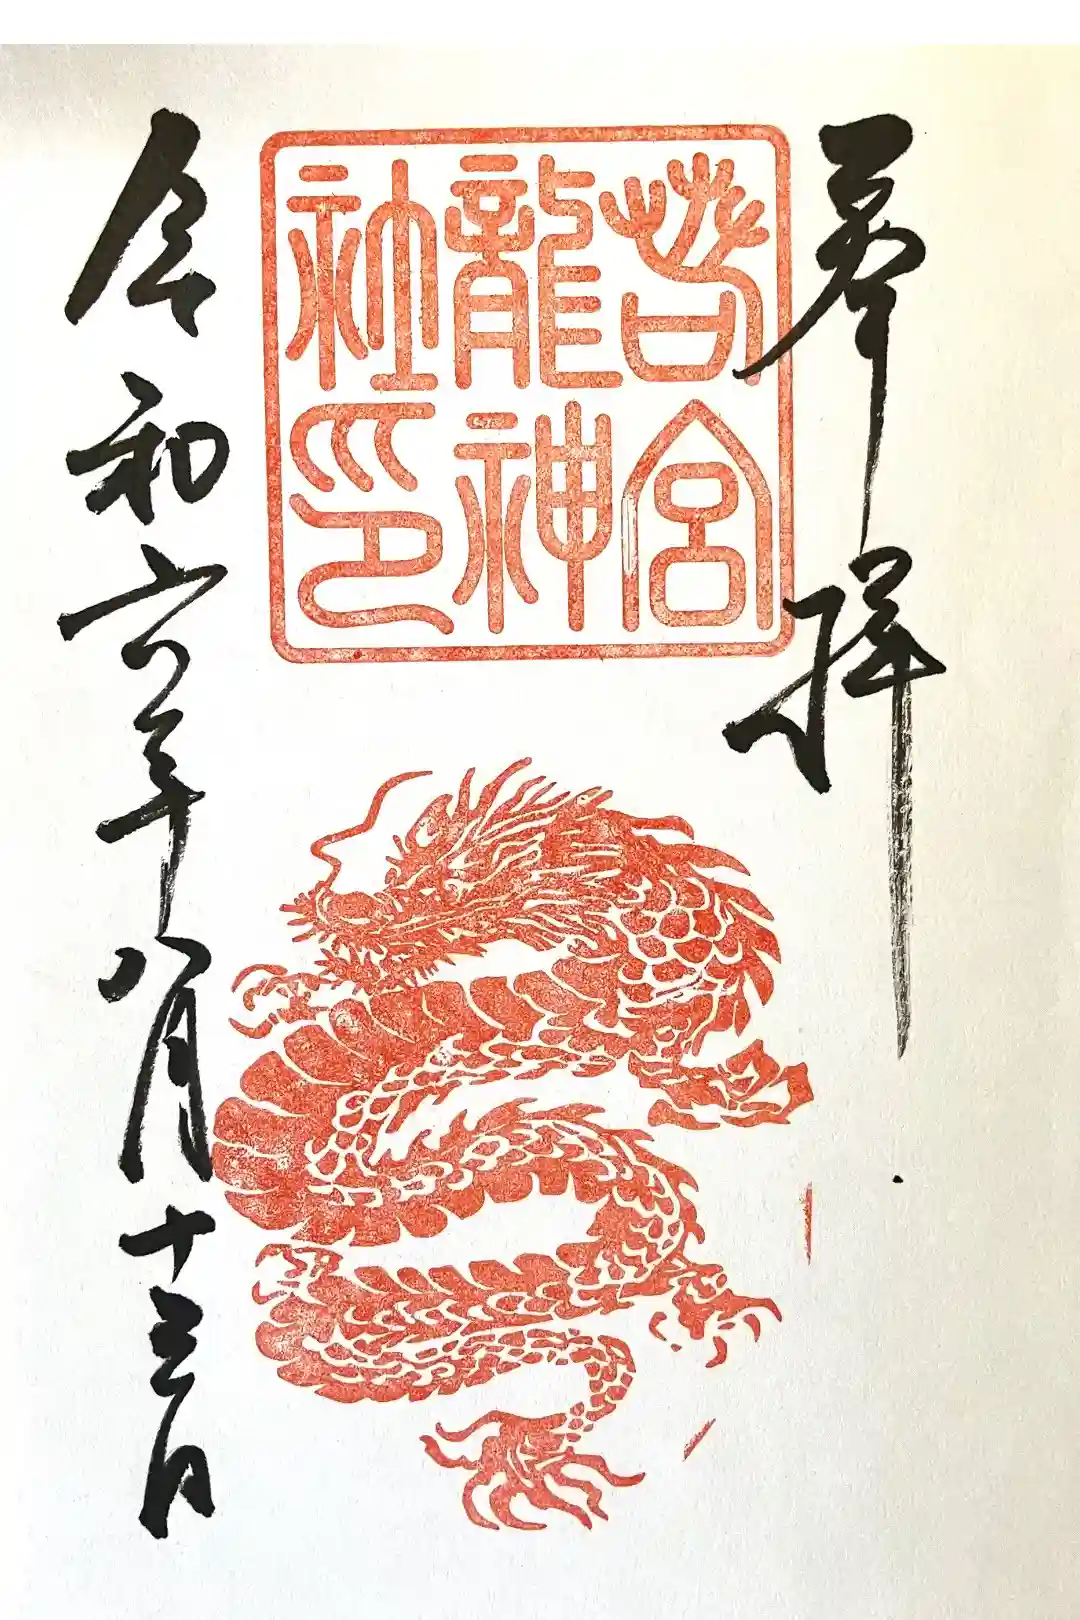 奉拝
若宮
龍神
社印
令和六年八月十三日